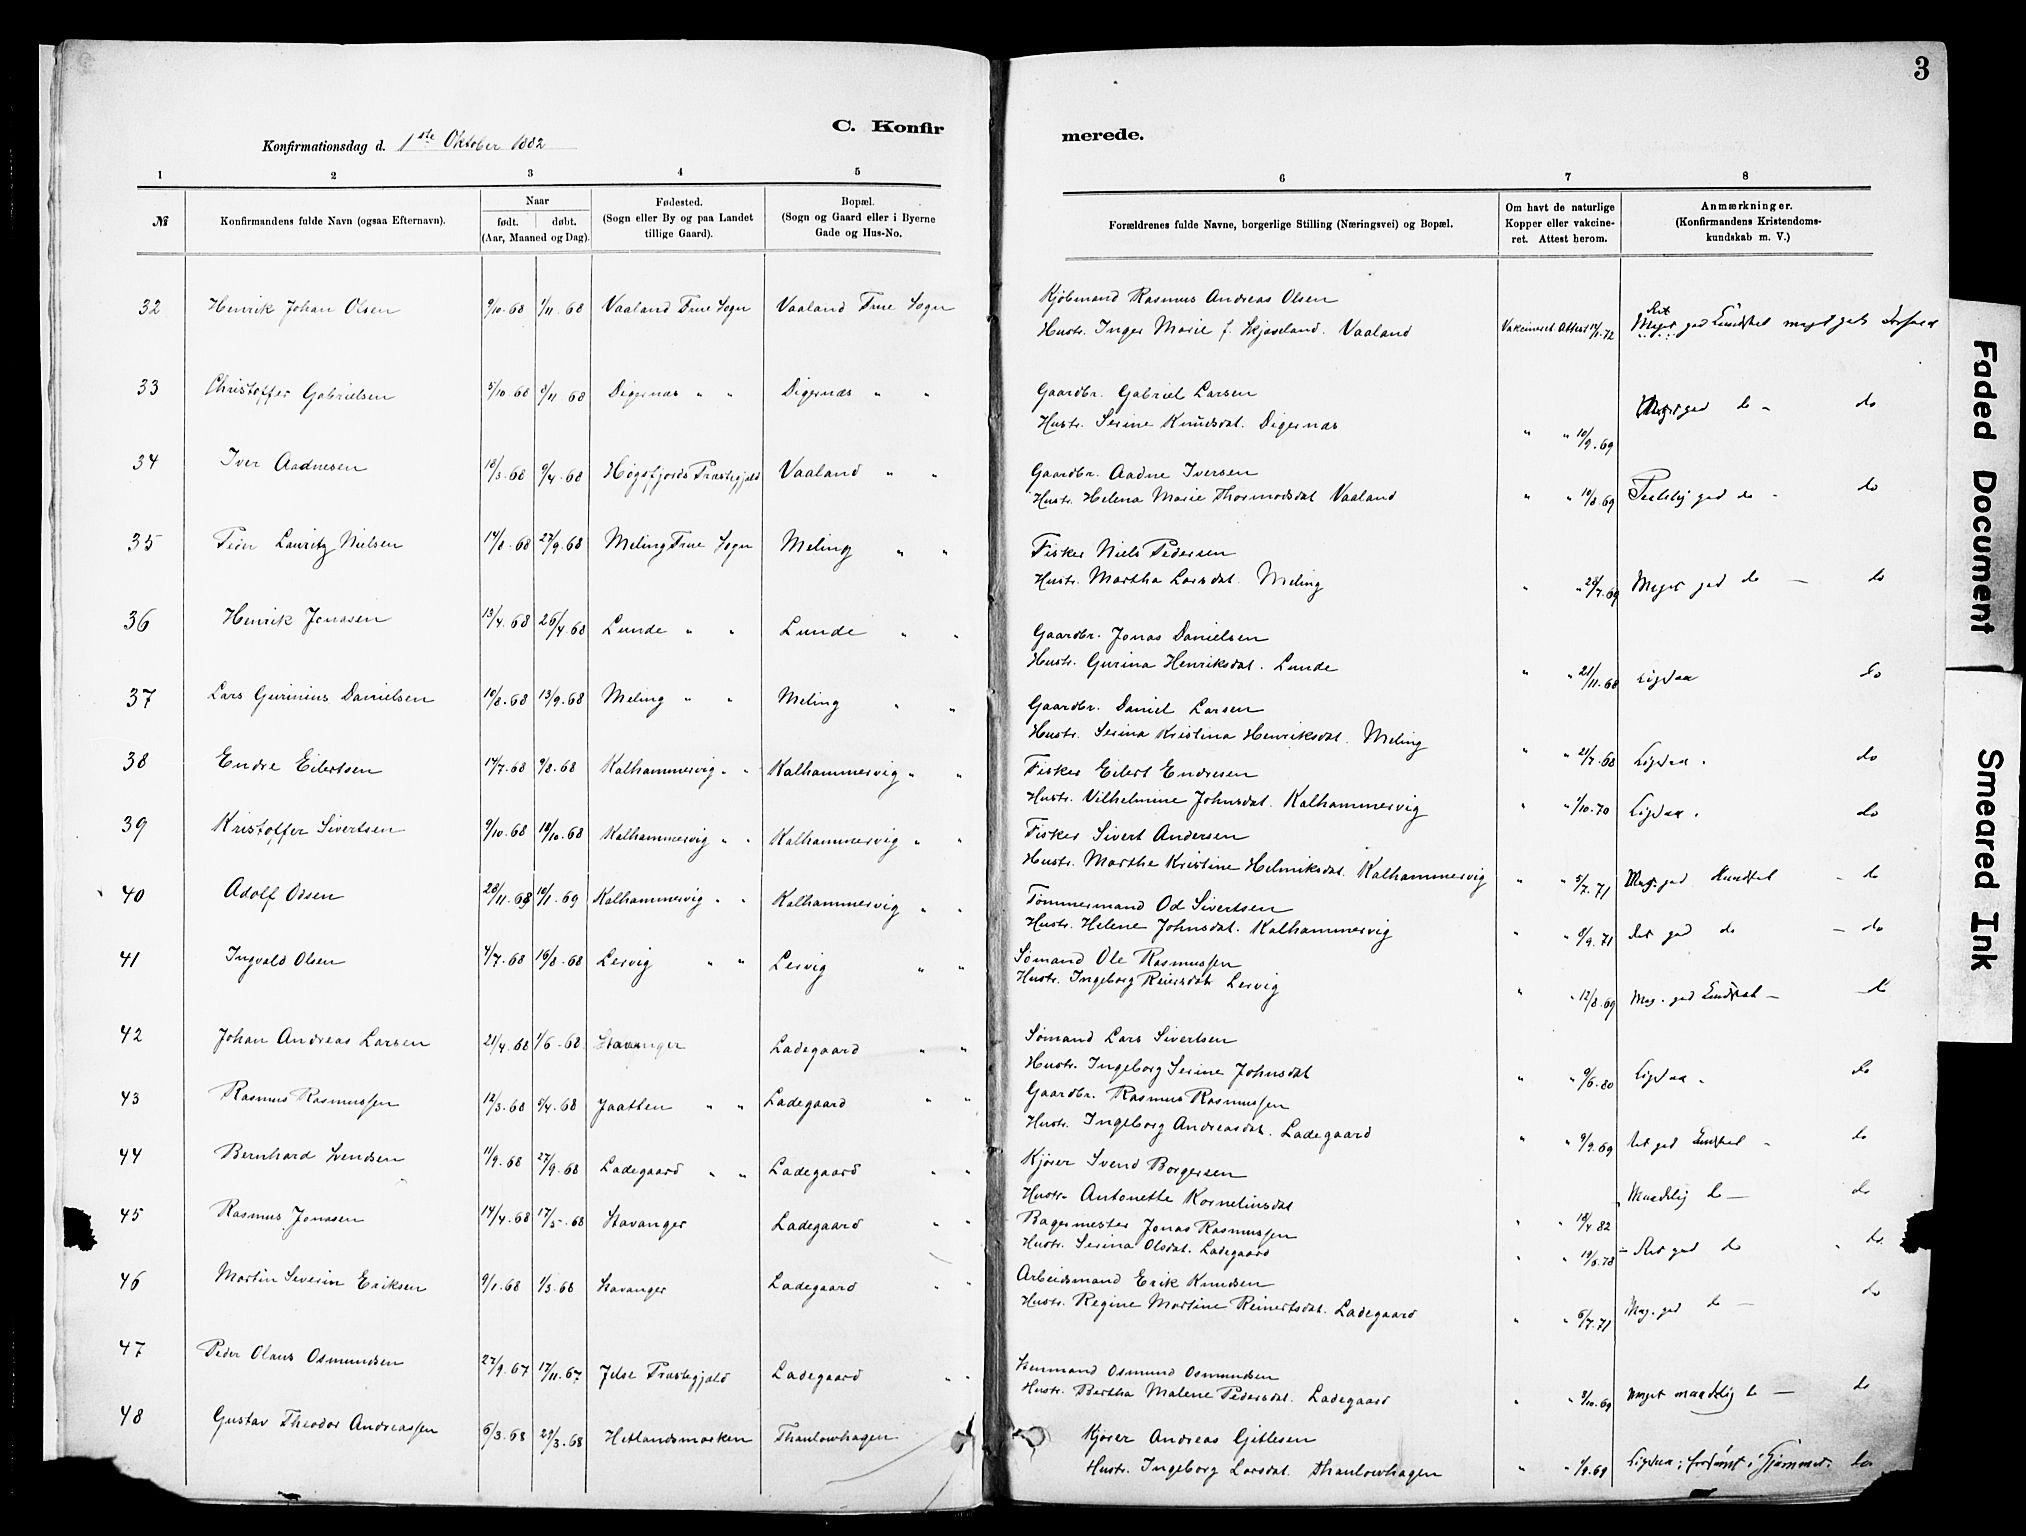 3
C. Konfirmerede.
Konfirmationsdag d. 1ste Oktober 1882
1 2 3 4 5 6 7 8
№
Konfirmandens fulde Navn (ogsaa Efternavn).
Naar
født. døbt.
(Aar, Maaned og Dag).
Fødested.
(Sogn eller By og paa Landet
tillige Gaard).
Bopæl.
(Sogn og Gaard eller i Byerne
Gade og Hus-No.
Forældrenes fulde Navne, borgerlige Stilling (Næringsvei) og Bopæl.
Om havt de naturlige
Kopper eller vakcine-
ret. Attest herom.
Anmærkninger.
(Konfirmandens Kristendoms-
kundskab m. V.)
32 Henrik Johan Olsen 9/10.68 1/11.68 Vaaland Frue Sogn Vaaland Frue Sogn Kjøbmand Rasmus Andreas Olsen
Hustr. Inger Marie f. Skjæseland. Vaaland Vakcineret Attest 72 Meget god Kundskab meget god
33 Christoffer Gabrielsen 5/10.68 8/11.68 Digernæs " " Digernæs " " Gaardbr. Gabriel Larsen
Hustr. Serine Knudsdat. Digernæs " " 10/9.69 Meget god do - do
34 Iver Aadnesen 18/3.68 9/4.68 Høgsfjords Præstegjæld Vaaland " " Gaardbr. Aadne Iversen
Hustr. Helena Marie Thormodsdat Vaaland " " 19/8.69 god do - do
35 Peder Lauritz Nielsen 17/8.68 27/9.68 Meling Frue Sogn Meling " " Fisker Niels Pedersen
Hustr. Martha Larsdat. Meling " " 28/7.69 Meget god do - do
36 Henrik Jonasen 13/4.68 26/4.68 Lunde " " Lunde " " Gaardbr. Jonas Danielsen
Hustr. Gurina Henriksdat. Lunde " " 21/11.68 Ligesaa do
37 Lars Gurinius Danielsen 10/8.68 13/9.68 Meling " " Meling " " Gaardbr. Daniel Larsen
Hustr. Serina Kristina Henriksdat. Meling " " 21/7.68 Ligesaa. do
38 Endre Eilertsen 17/7.68 9/8.68 Kalhammervig " " Kalhammervig " " Fisker Eilert Endresen
Hustr. Vilhelmine Johnsdat. Kalhammervig " " 1/10.70 Ligesaa. do
39 Kristoffer Sivertsen 9/10.68 18/10.68 Kalhammervig " " Kalhammervig " " Fisker Sivert Andersen
Hustr. Martha Kristine Helmiksdat. Kalhammervig " " 5/7.71 Meg. god Kundskab - do
40 Adolf Odsen 28/11.68 10/1.69 Kalhammervig " " Kalhammervig " " Tømmermand Od Sivertsen
Hustr. Helene Johnsdat. Kalhammervig " " 9/9.71 Ret god do - do
41 Ingvald Olsen 4/7.68 16/8.68 Lervig " " Lervig " " Sømand Ole Rasmussen
Hustr. Ingeborg Reiersdat. Lervig " " 12/8.69 Meg. god Kundskab - do
42 Johan Andreas Larsen 21/4.68 1/6-68 Stavanger Ladegaard " " Sømand Lars Sivertsen
Hustr. Ingeborg Serine Johnsdat " " 9/6.80 Ligesaa. do
43 Rasmus Rasmussen 12/3.68 5/4.68 Jaatten " " Ladegaard " " Gaardbr. Rasmus Rasmussen
Hustr. Ingeborg Andreasdat. Ladegaard " " 9/9.69 Ret god Kundskab - do
44 Bernhard Svendsen 11/9.68 27/9.68 Ladegaard " " Ladegaard " " Kjører Svend Borgersen
Hustr. Antonette Kornelinsdat " " 18/4.82 Maadelig do - do
45 Rasmus Jonasen 14/4.68 17/5.68 Stavanger Ladegaard " " Bagermester Jonas Rasmussen
Hustr. Serina Olsdat. Ladegaard " " 19/6.78 - Ret god do " do
46 Martin Severin Eriksen 9/1.68 1/3.68 Stavanger Ladegaard " " Arbeidsmand Erik Knudsen
Hustr. Regine Martine Reinertsdat. Ladegaard " " 6/7.71 Meg. god do - do
47 Peder Olaus Osmundsen 27/9.67 17/11.67 Jelse Præstegjæld Ladegaard " " Osmund Osmundsen
Hustr. Bertha Malene Pedersdat. Ladegaard " " 3/10.69 Meget maadelig do - do
48 Gustav Theodor Andreassen 6/3.68 29/3.68 Hetlandsmarken Thaulowhagen Kjører Andreas Gitlesen
Hustr. Ingeborg Larsdat. Thaulowhagen " " 1/9.69 Ligesaa; do
Faded Document
Smeared Ink